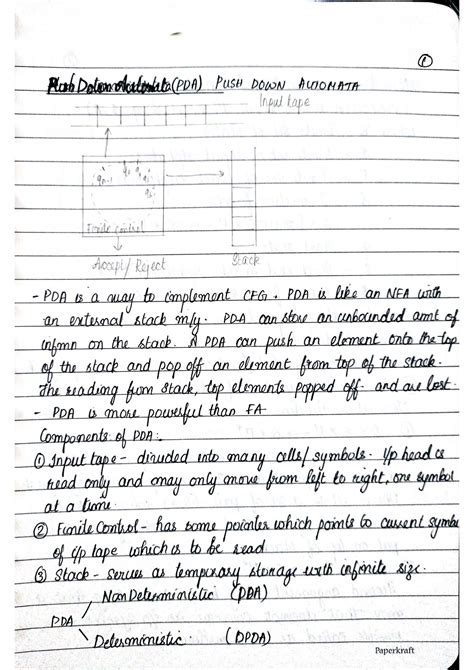 1
(PDA) PUSH DOWN AUTOMATA
Input tape
Finite control
Accept/ Reject
Stack
- PDA is a way to implement CFG. PDA is like an NFA with
an external stack m/y. PDA can store an unbounded amt of
infmn on the stack. A PDA can push an element onto the top
of the stack and pop off an element from top of the stack.
The reading from stack, top elements popped off. and are lost.
- PDA is more powerful than FA
Components of PDA:
① Input tape - divided into many cells/ symbols. i/p head is
read only and may only move from left to right, one symbol
at a time.
② Finite Control - has some pointer which points to current symbo
of i/p tape which is to be read.
③ Stack - serves as temporary storage with infinite size.
Non Deterministic (PDA)
PDA
Deterministic. (DPDA)
Paperkraft